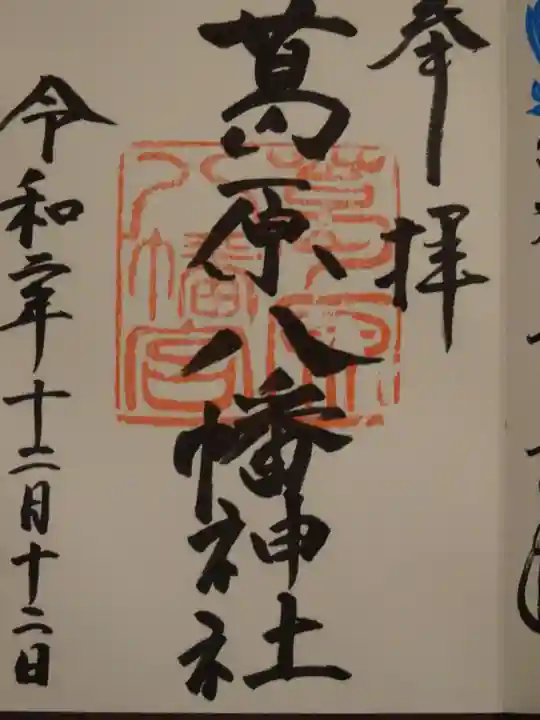 奉拝
葛原八幡神社
令和二年十二月十二日